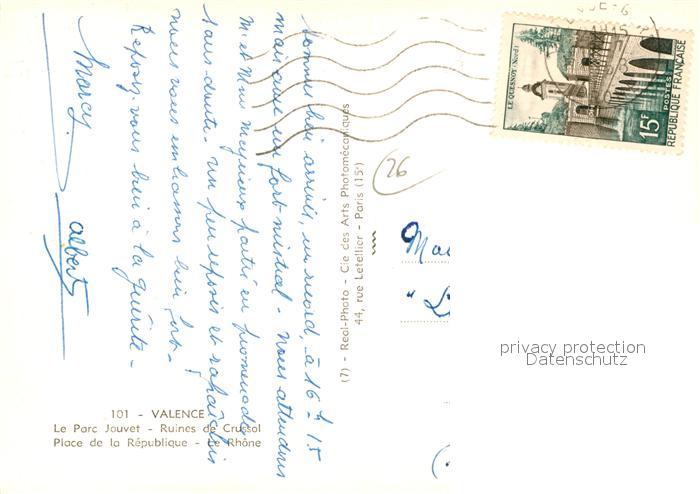 Sommes bien arrivés, en record, à 16 h 15
mais avec un fort mistral - Nous attendons
M. et Mme partis en promenade
sans doute. Un peu reposés et rafraîchis
nous vous embrassons bien fort -
Reposez-vous bien à la guérite -
Marcy
Albert
(7) - Real-Photo - Cie des Arts Photomécaniques
44, rue Letellier - Paris (15e)
101 - VALENCE
Le Parc Jouvet - Ruines de Crussol
Place de la République - Le Rhône
26
LE QUESNOY (Nord)
15F
POSTES
REPUBLIQUE FRANÇAISE
privacy protection
Datenschutz